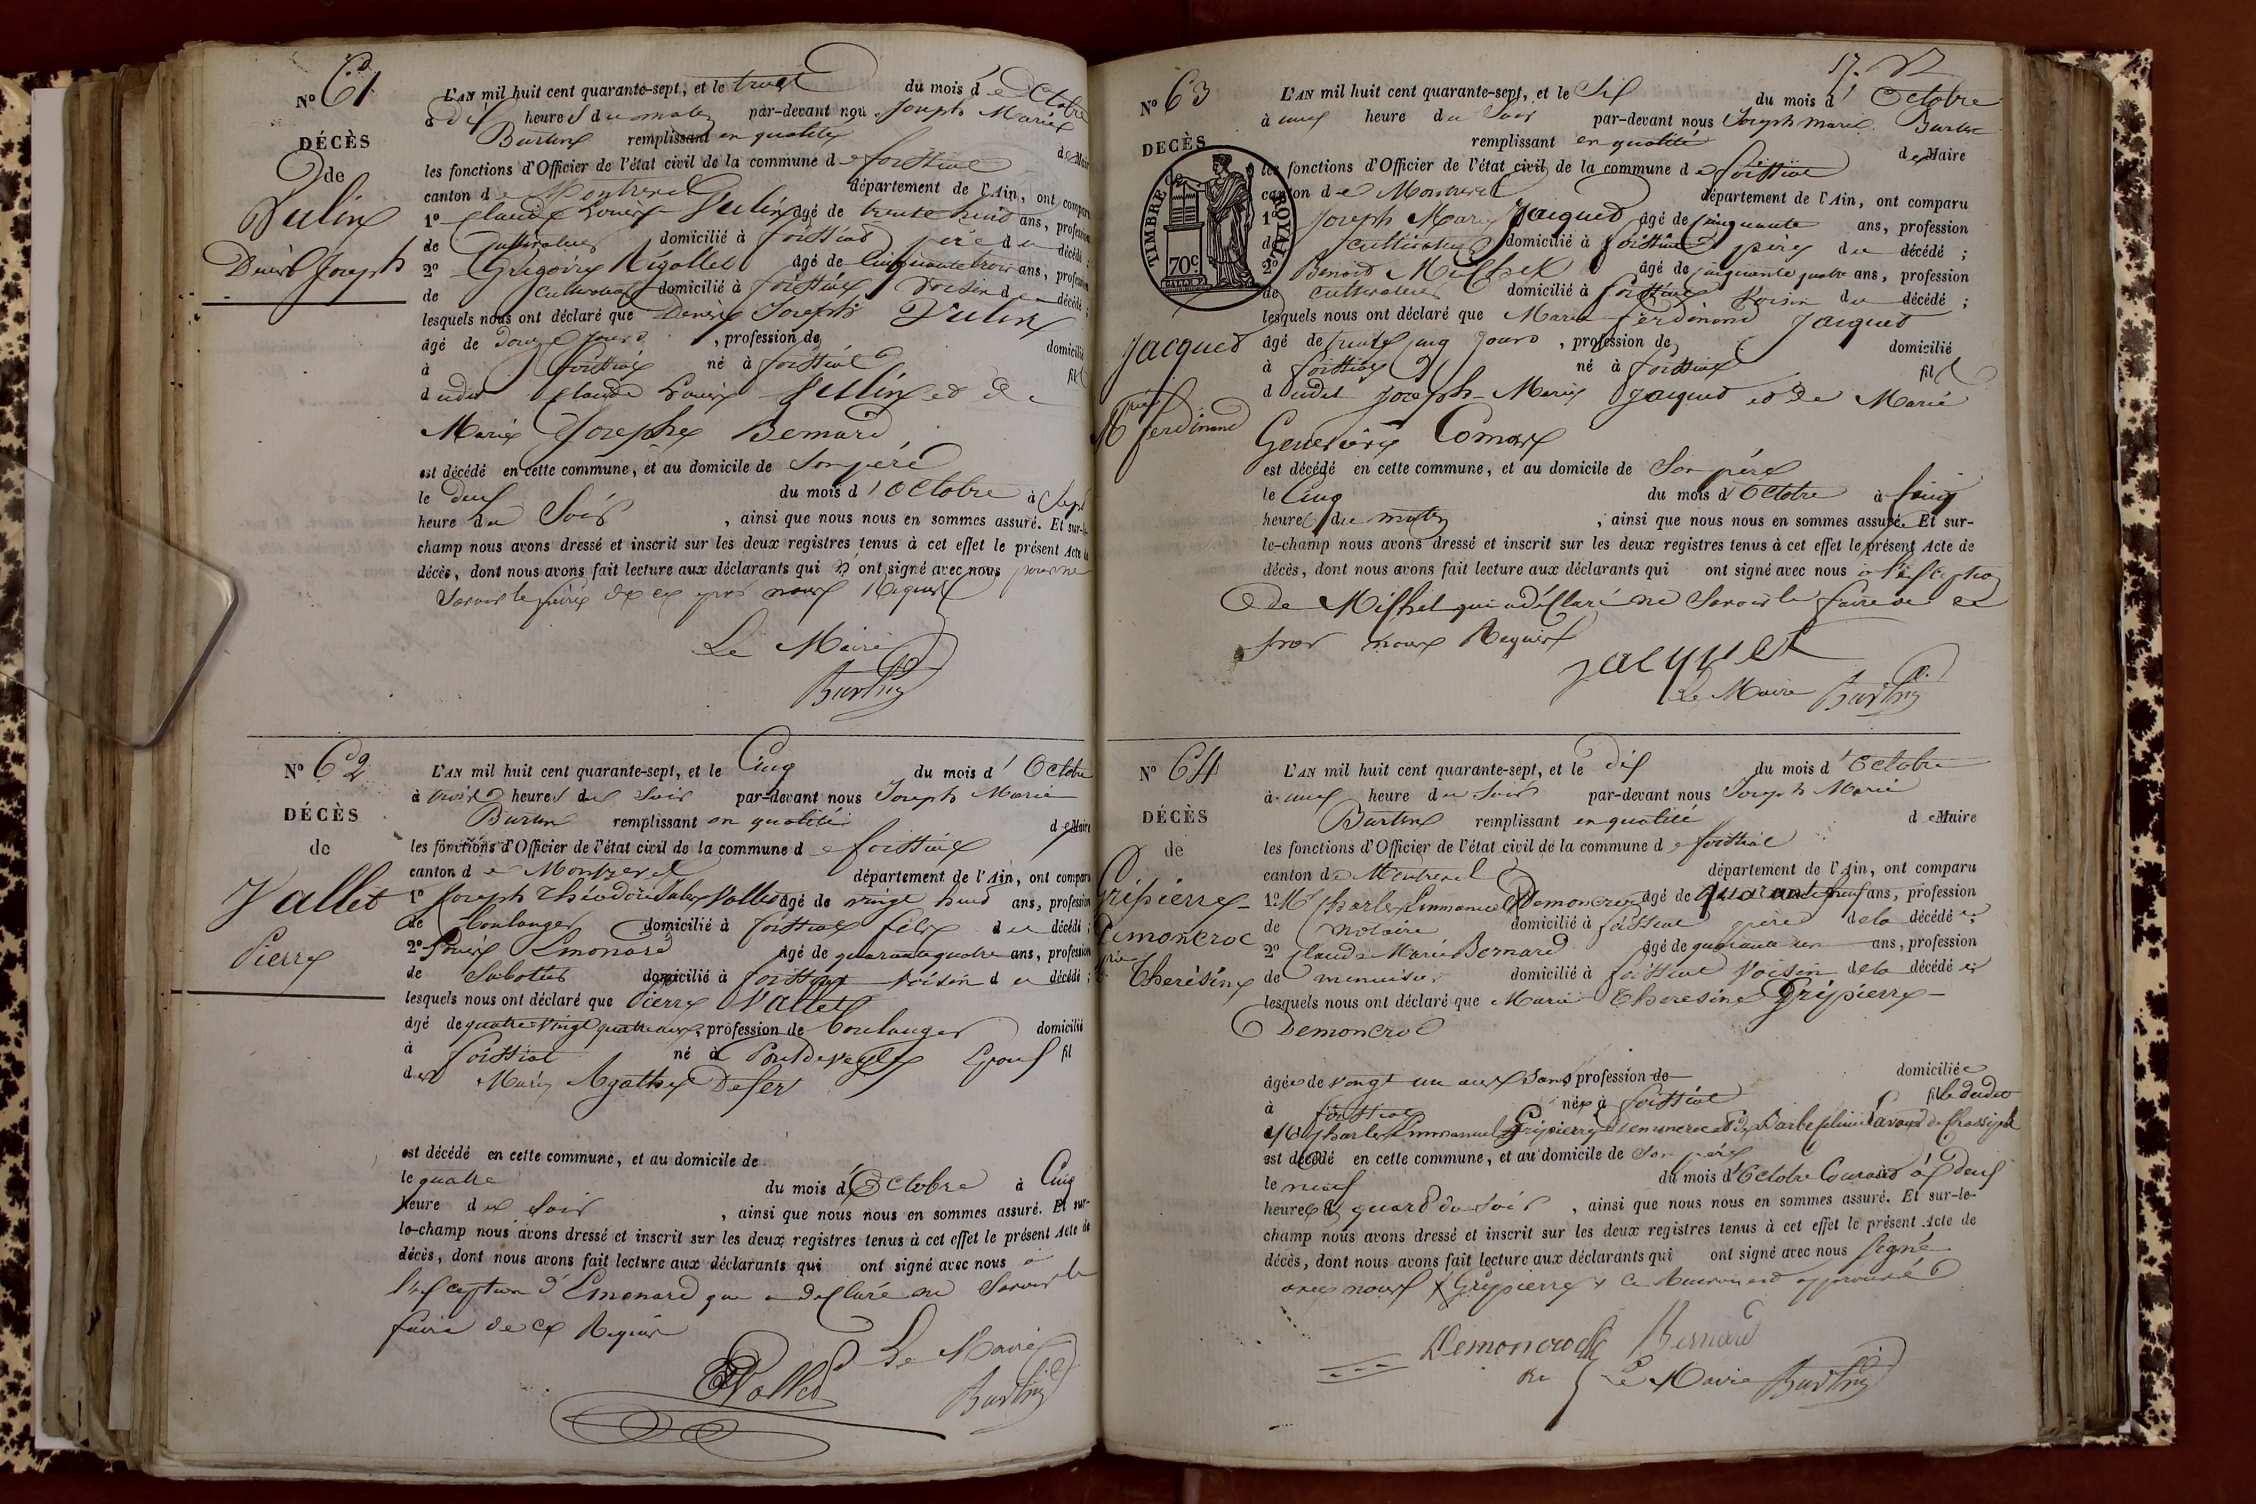 No 61
DÉCÈS
de
Julin
Denis Joseph
L'AN mil huit cent quarante-sept, et le trois du mois d'Octobre
à dix heures du matin par-devant nous Joseph Marie
Burtin remplissant en qualité de Maire
les fonctions d'Officier de l'état civil de la commune de foissiat
canton de Montrevel département de l'Ain, ont comparu
1º Claude Louis Julin âgé de trente huit ans, profession
de Cultivateur domicilié à foissiat père du décédé ;
2º Grégoire Rigollet âgé de Cinquante trois ans, profession
de Cultivateur domicilié à foissiat voisin du décédé ;
lesquels nous ont déclaré que Denis Joseph Julin
âgé de douze jours , profession de domicilié
à foissiat né à foissiat fils
dudit Claude Louis Julin et de
Marie Josephe Bernard
est décédé en cette commune, et au domicile de Son père
le deux du mois d'Octobre à Sept
heure du Soir , ainsi que nous nous en sommes assuré. Et sur-le-
champ nous avons dressé et inscrit sur les deux registres tenus à cet effet le présent Acte de
décès, dont nous avons fait lecture aux déclarants qui n'ont signé avec nous pour ne
Savoir le faire de ce par nous Requis
Le Maire
Burtin
No 62
DÉCÈS
de
Vallet
Pierre
L'AN mil huit cent quarante-sept, et le Cinq du mois d'Octobre
à trois heures du Soir par-devant nous Joseph Marie
Burtin remplissant en qualité de Maire
les fonctions d'Officier de l'état civil de la commune de foissiat
canton de Montrevel département de l'Ain, ont comparu
1º Joseph Théodore Vallet âgé de vingt huit ans, profession
de boulanger domicilié à foissiat fils du décédé ;
2º Louis Emonard âgé de quarante quatre ans, profession
de Sabotier domicilié à foissiat voisin du décédé ;
lesquels nous ont déclaré que Pierre Vallet
âgé de quatre vingt quatre ans, profession de boulanger domicilié
à foissiat né à Pontdeveyle Epoux fil
de Marie Agathe Defer
est décédé en cette commune, et au domicile de
le quatre du mois d'Octobre à Cinq
heure du soir , ainsi que nous nous en sommes assuré. Et sur-
le-champ nous avons dressé et inscrit sur les deux registres tenus à cet effet le présent Acte de
décès, dont nous avons fait lecture aux déclarants qui ont signé avec nous à
l'exception d'Emonard qui a déclaré ne Savoir le
faire de ce Requis
Le Maire
Vallet
Burtin
17.
No 63
DÉCÈS
de
TIMBRE ROYAL
70c
Jacquet
Marie
ferdinand
L'AN mil huit cent quarante-sept, et le Six du mois d'Octobre
à une heure du Soir par-devant nous Joseph Marie Burtin
remplissant en qualité de Maire
les fonctions d'Officier de l'état civil de la commune de foissiat
canton de Montrevel département de l'Ain, ont comparu
1º Joseph Marie Jacquet âgé de Cinquante ans, profession
de cultivateur domicilié à foissiat père du décédé ;
2º Benoit Michel âgé de cinquante quatre ans, profession
de cultivateur domicilié à foissiat voisin du décédé ;
lesquels nous ont déclaré que Marie ferdinand Jacquet
âgé de trente cinq Jours , profession de domicilié
à foissiat né à foissiat fils
dudit Joseph Marie Jacquet et de Marie
Geneviève Comas
est décédé en cette commune, et au domicile de Son père
le Cinq du mois d'Octobre à Cinq
heures du matin , ainsi que nous nous en sommes assuré. Et sur-
le-champ nous avons dressé et inscrit sur les deux registres tenus à cet effet le présent Acte de
décès, dont nous avons fait lecture aux déclarants qui ont signé avec nous à l'exception
de Michel qui a déclaré ne Savoir le faire de ce
par nous Requis
jacquet
Le Maire Burtin
No 64
DÉCÈS
de
Gripierre
Demoncroc
Marie
Thérésine
L'AN mil huit cent quarante-sept, et le dix du mois d'Octobre
à une heure du Soir par-devant nous Joseph Marie
Burtin remplissant en qualité de Maire
les fonctions d'Officier de l'état civil de la commune de foissiat
canton de Montrevel département de l'Ain, ont comparu
1º Mr Charles Emmanuel Demoncroc âgé de quarante neuf ans, profession
de notaire domicilié à foissiat père de la décédée ;
2º Claude Marie Bernard âgé de quarante un ans, profession
de menuisier domicilié à foissiat voisin de la décédée
lesquels nous ont déclaré que Marie Theresine Gripierre
Demoncroc
âgée de vingt un ans Sans profession de domiciliée
à foissiat née à foissiat fille dudit
Mr Charles Emmanuel Gripierre Demoncroc et de Barbe
est décédé en cette commune, et au domicile de Son père
le neuf du mois d'Octobre Courant à Deux
heures quard du soir , ainsi que nous nous en sommes assuré. Et sur-le-
champ nous avons dressé et inscrit sur les deux registres tenus à cet effet le présent Acte de
décès, dont nous avons fait lecture aux déclarants qui ont signé avec nous Signé
avec nous Gripierre approuvé
Demoncroc Bernard
Le Maire Burtin